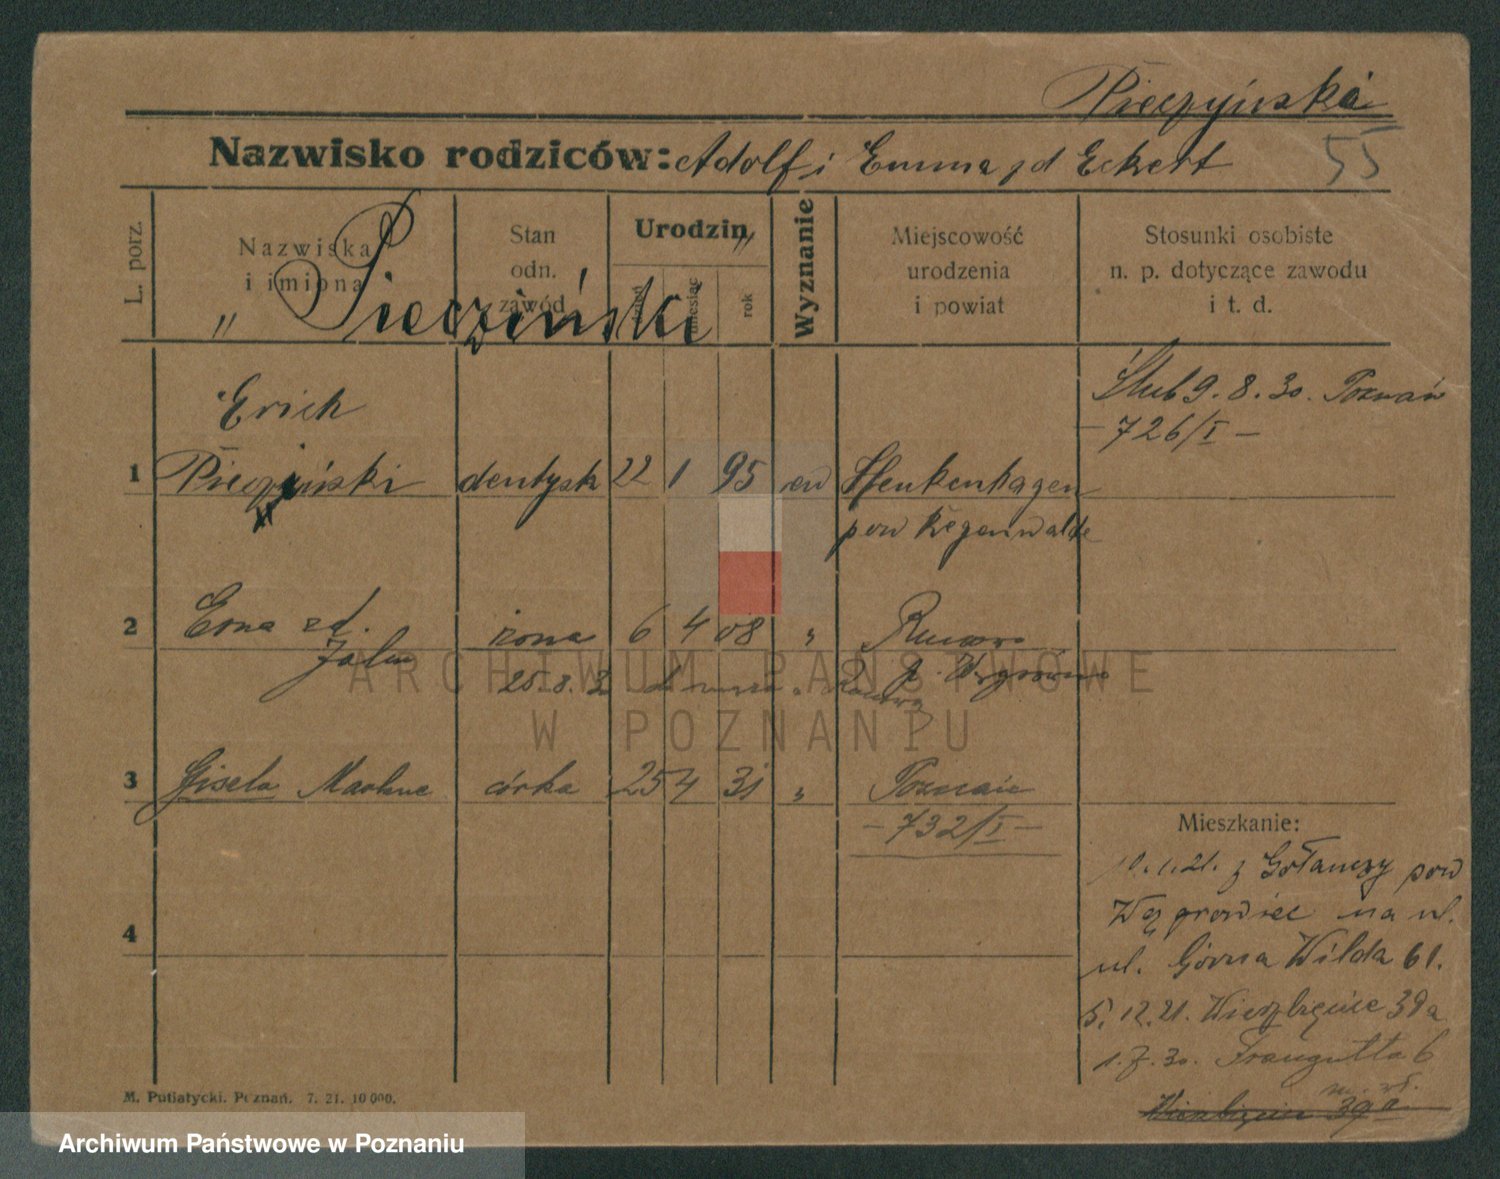 Pieczyńska
Nazwisko rodziców: Adolf i Emma zd Eckert 55
L. porz.
Nazwiska i imiona
Stan odn. zawód
Urodzin
dzień
miesiąc
rok
Wyznanie
Miejscowość urodzenia i powiat
Stosunki osobiste n. p. dotyczące zawodu i t. d.
" Piecziński "
Erich
1 Pieczyński dentysta 22 1 95 ew Henkenhagen
pow Regenwalde
Ślub 9. 8. 30. Poznań
– 726/I –
2 Erna zd. żona 6 4 08 "
25. 8. 3
3 Gisela Marlene córka 25 4 31 " Poznań
– 732/I –
4
Mieszkanie:
10.1.21. z Gołańczy pow
Wągrowiec na ul.
ul. Górna Wilda 61.
5. 12. 21. Wierzbięcice 39a
1. 7. 30. Traugutta 6
Wierzbięcice 39a
M. Putiatycki. Poznań. 7. 21. 10 000.
ARCHIWUM PAŃSTWOWE
W POZNANIU
Archiwum Państwowe w Poznaniu